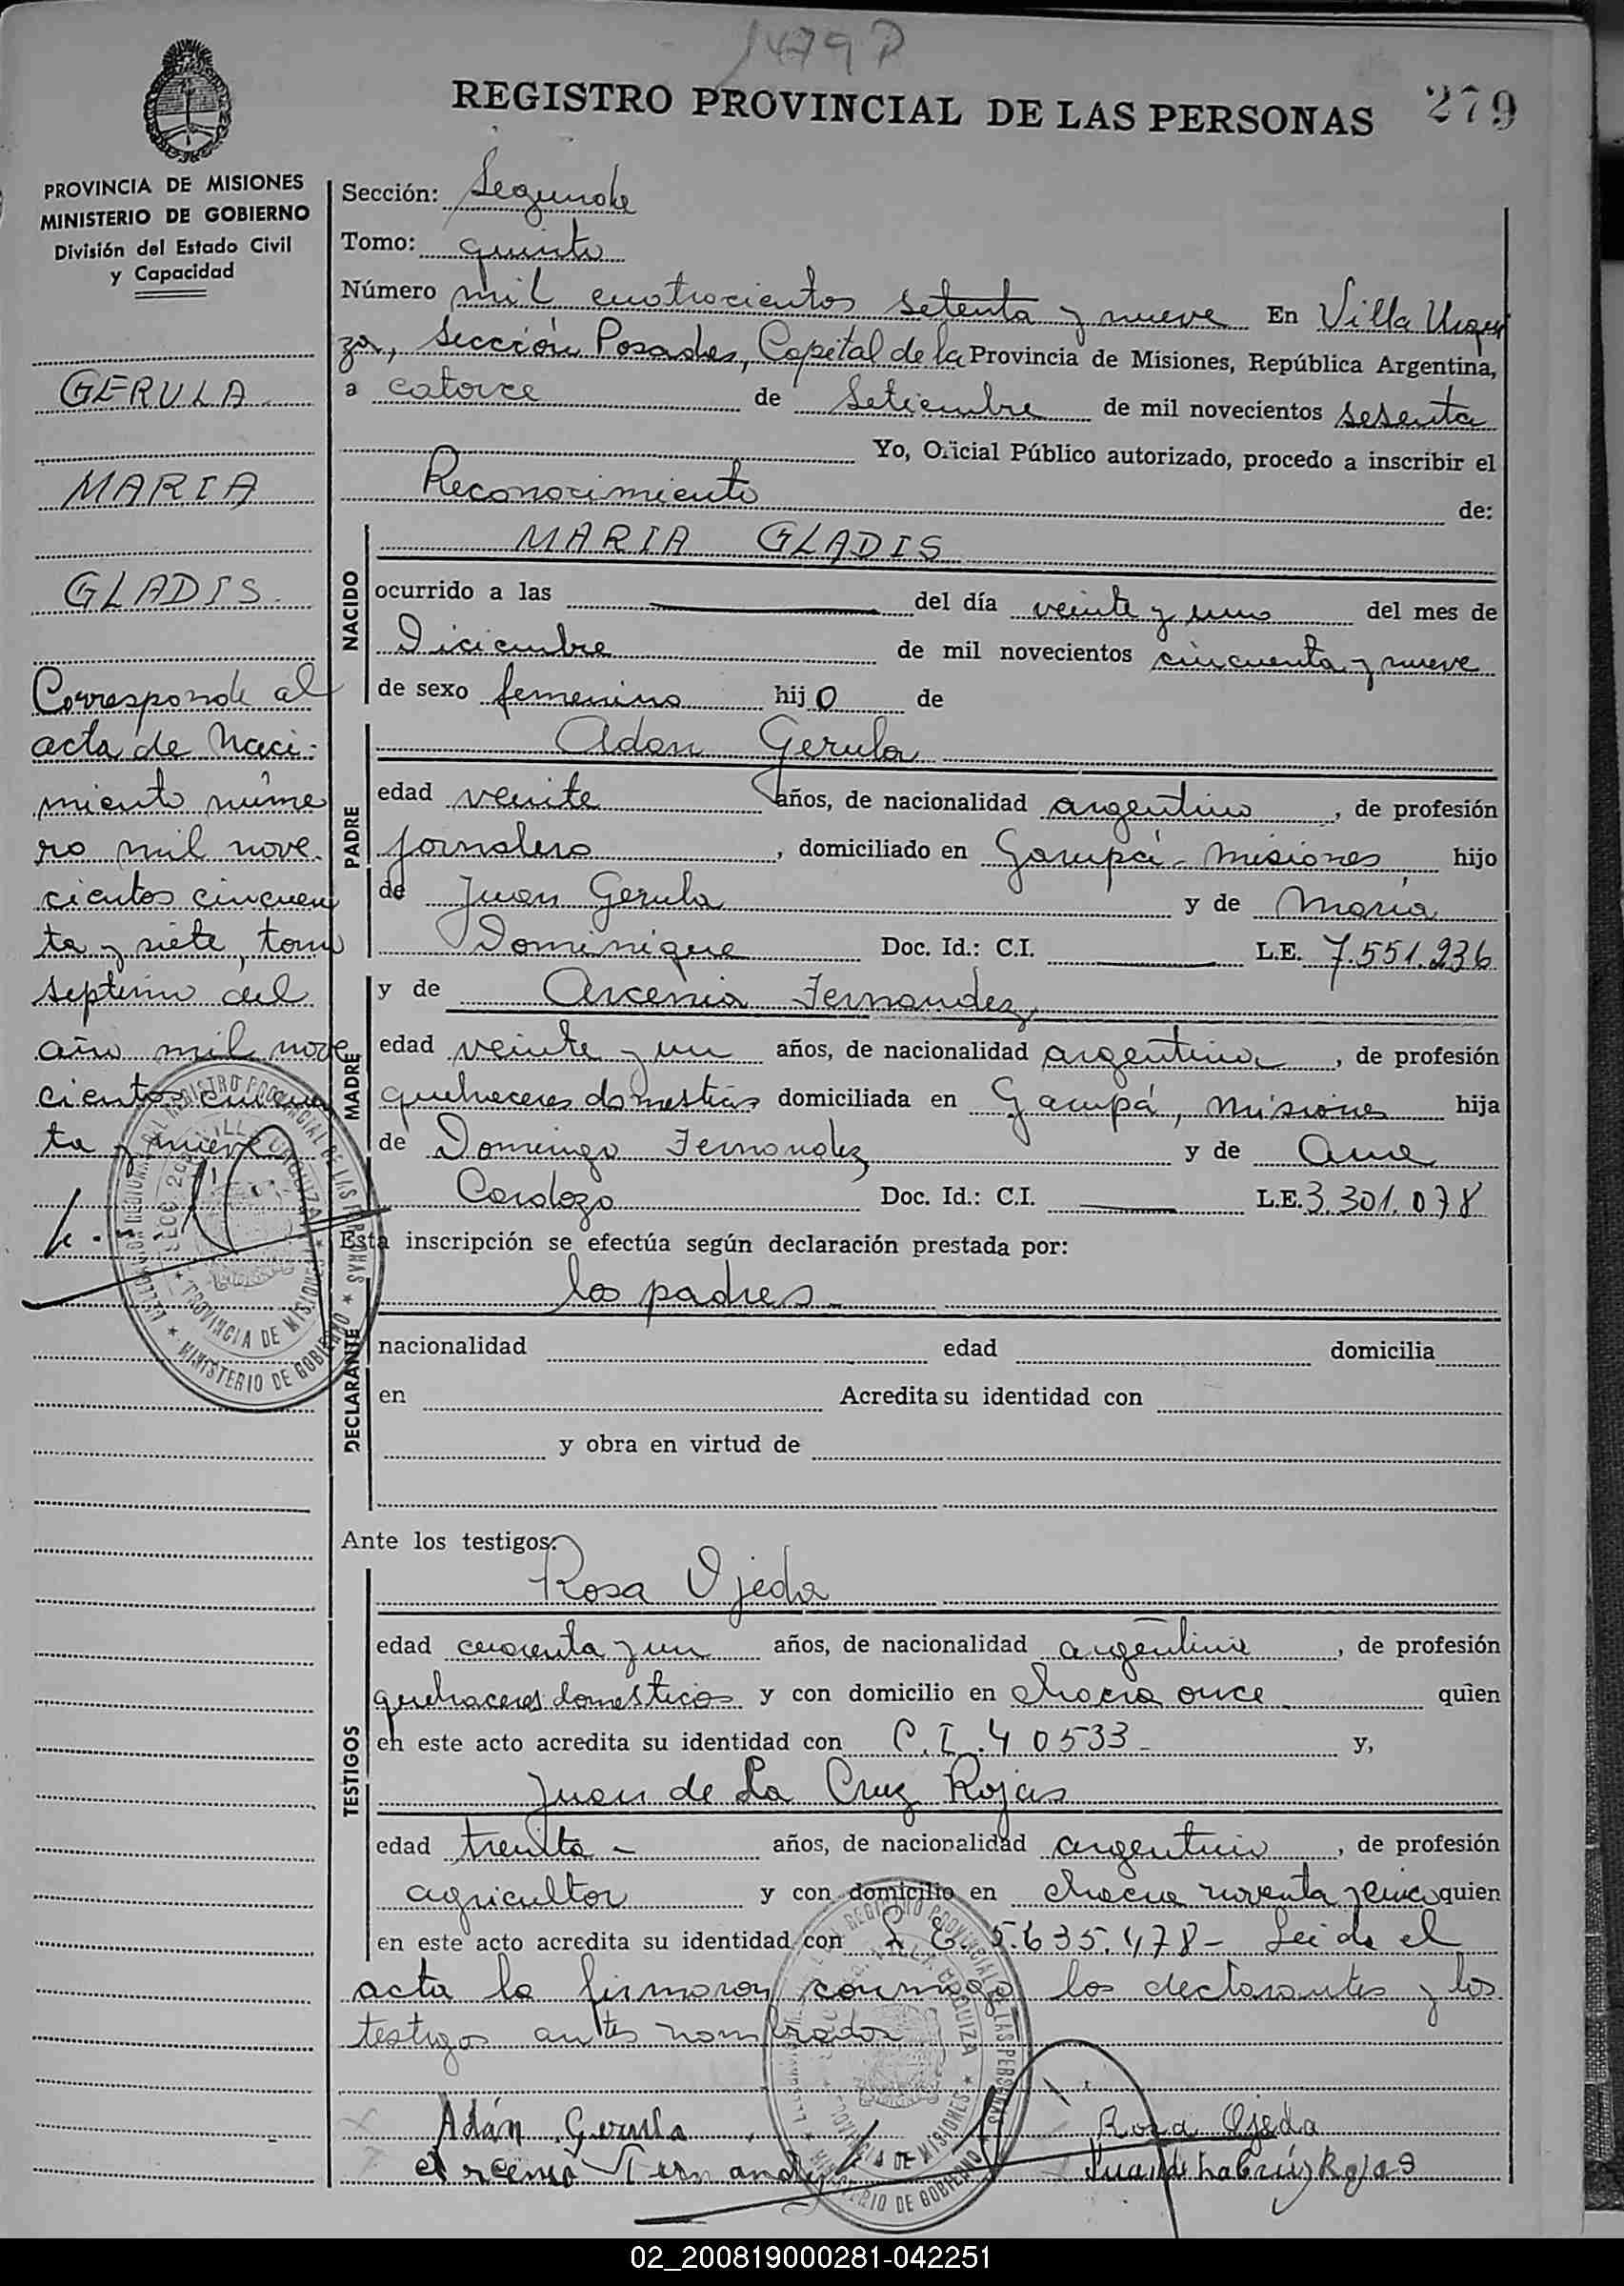 1479 P
REGISTRO PROVINCIAL DE LAS PERSONAS 279
PROVINCIA DE MISIONES
MINISTERIO DE GOBIERNO
División del Estado Civil
y Capacidad
GERULA
MARIA
GLADIS.
Corresponde al
acta de Naci-
miento núme
ro mil nove-
cientos cincuen
ta y siete, tomo
septimo del
año mil nove
cientos cincuen
ta y nueve
Sección: Segunda
Tomo: quinto
Número mil cuatrocientos setenta y nueve En Villa Urqui
za, Sección Posadas, Capital de la Provincia de Misiones, República Argentina,
a catorce de Setiembre de mil novecientos sesenta
Yo, Oficial Público autorizado, procedo a inscribir el
Reconocimiento de:
NACIDO
MARIA GLADIS
ocurrido a las del día veinte y uno del mes de
Diciembre de mil novecientos cincuenta y nueve
de sexo femenino hijo de
PADRE
Adan Gerula
edad veinte años, de nacionalidad argentino, de profesión
jornalero, domiciliado en Garupá - Misiones hijo
de Juan Gerula y de María
Dominique Doc. Id.: C.I. L.E. 7.551.236
MADRE
y de Arcenia Fernandez
edad veinte y un años, de nacionalidad argentina, de profesión
quehaceres domesticos domiciliada en Garupá, Misiones hija
de Domingo Fernandez y de Ana
Cardozo Doc. Id.: C.I. L.E. 3.301.078
Esta inscripción se efectúa según declaración prestada por:
DECLARANTE
los padres
nacionalidad edad domicilia
en Acredita su identidad con
y obra en virtud de
Ante los testigos:
TESTIGOS
Rosa Ojeda
edad cuarenta y un años, de nacionalidad argentina, de profesión
quehaceres domesticos y con domicilio en chacra once quien
en este acto acredita su identidad con C.I. 40533- y,
Juan de La Cruz Rojas
edad treinta - años, de nacionalidad argentino, de profesión
agricultor y con domicilio en chacra noventa y cinco quien
en este acto acredita su identidad con L.E. 5.635.478- Leida el
acta la firmaron conmigo los declarantes y los
testigos antes nombrados
Adán Gerula Rosa Ojeda
Arcenia Fernandez Juan de la Crúz Rojas
PROVINCIA DE MISIONES
MINISTERIO DE GOBIERNO
02_200819000281-042251